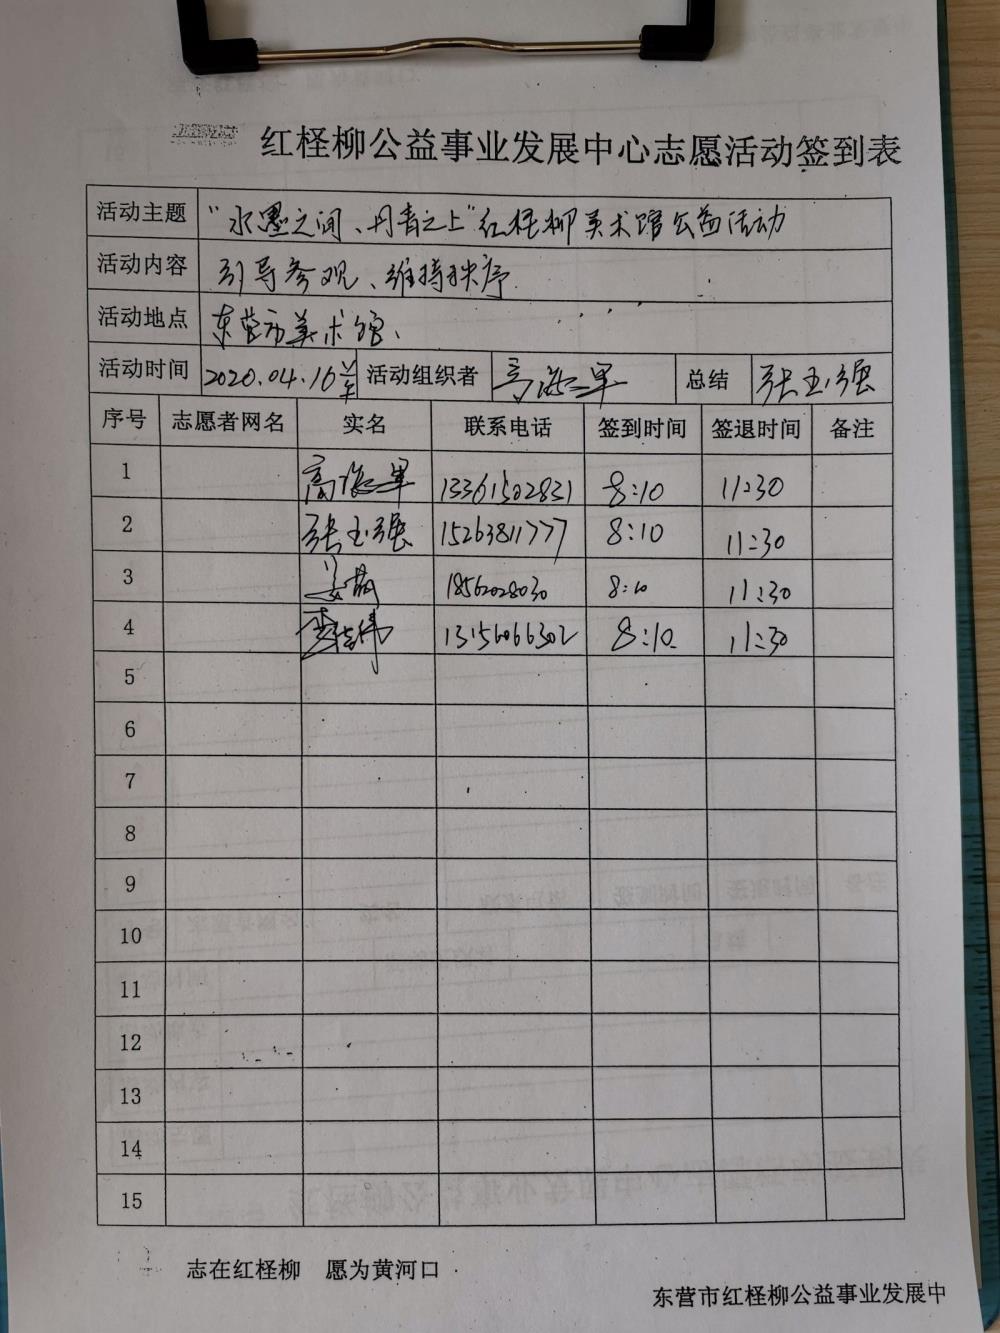 红柽柳公益事业发展中心志愿活动签到表
活动主题 “水墨之间、丹青之上”红柽柳美术馆公益活动
活动内容 引导参观、维持秩序
活动地点 东营市美术馆、
活动时间 2020.04.16 活动组织者 高海军 总结 张玉强
序号 志愿者网名 实名 联系电话 签到时间 签退时间 备注
1 高海军 13361502831 8:10 11:30
2 张玉强 15263811777 8:10 11:30
3 8:10 11:30
4 13156066302 8:10 11:30
5
6
7
8
9
10
11
12
13
14
15
志在红柽柳 愿为黄河口
东营市红柽柳公益事业发展中